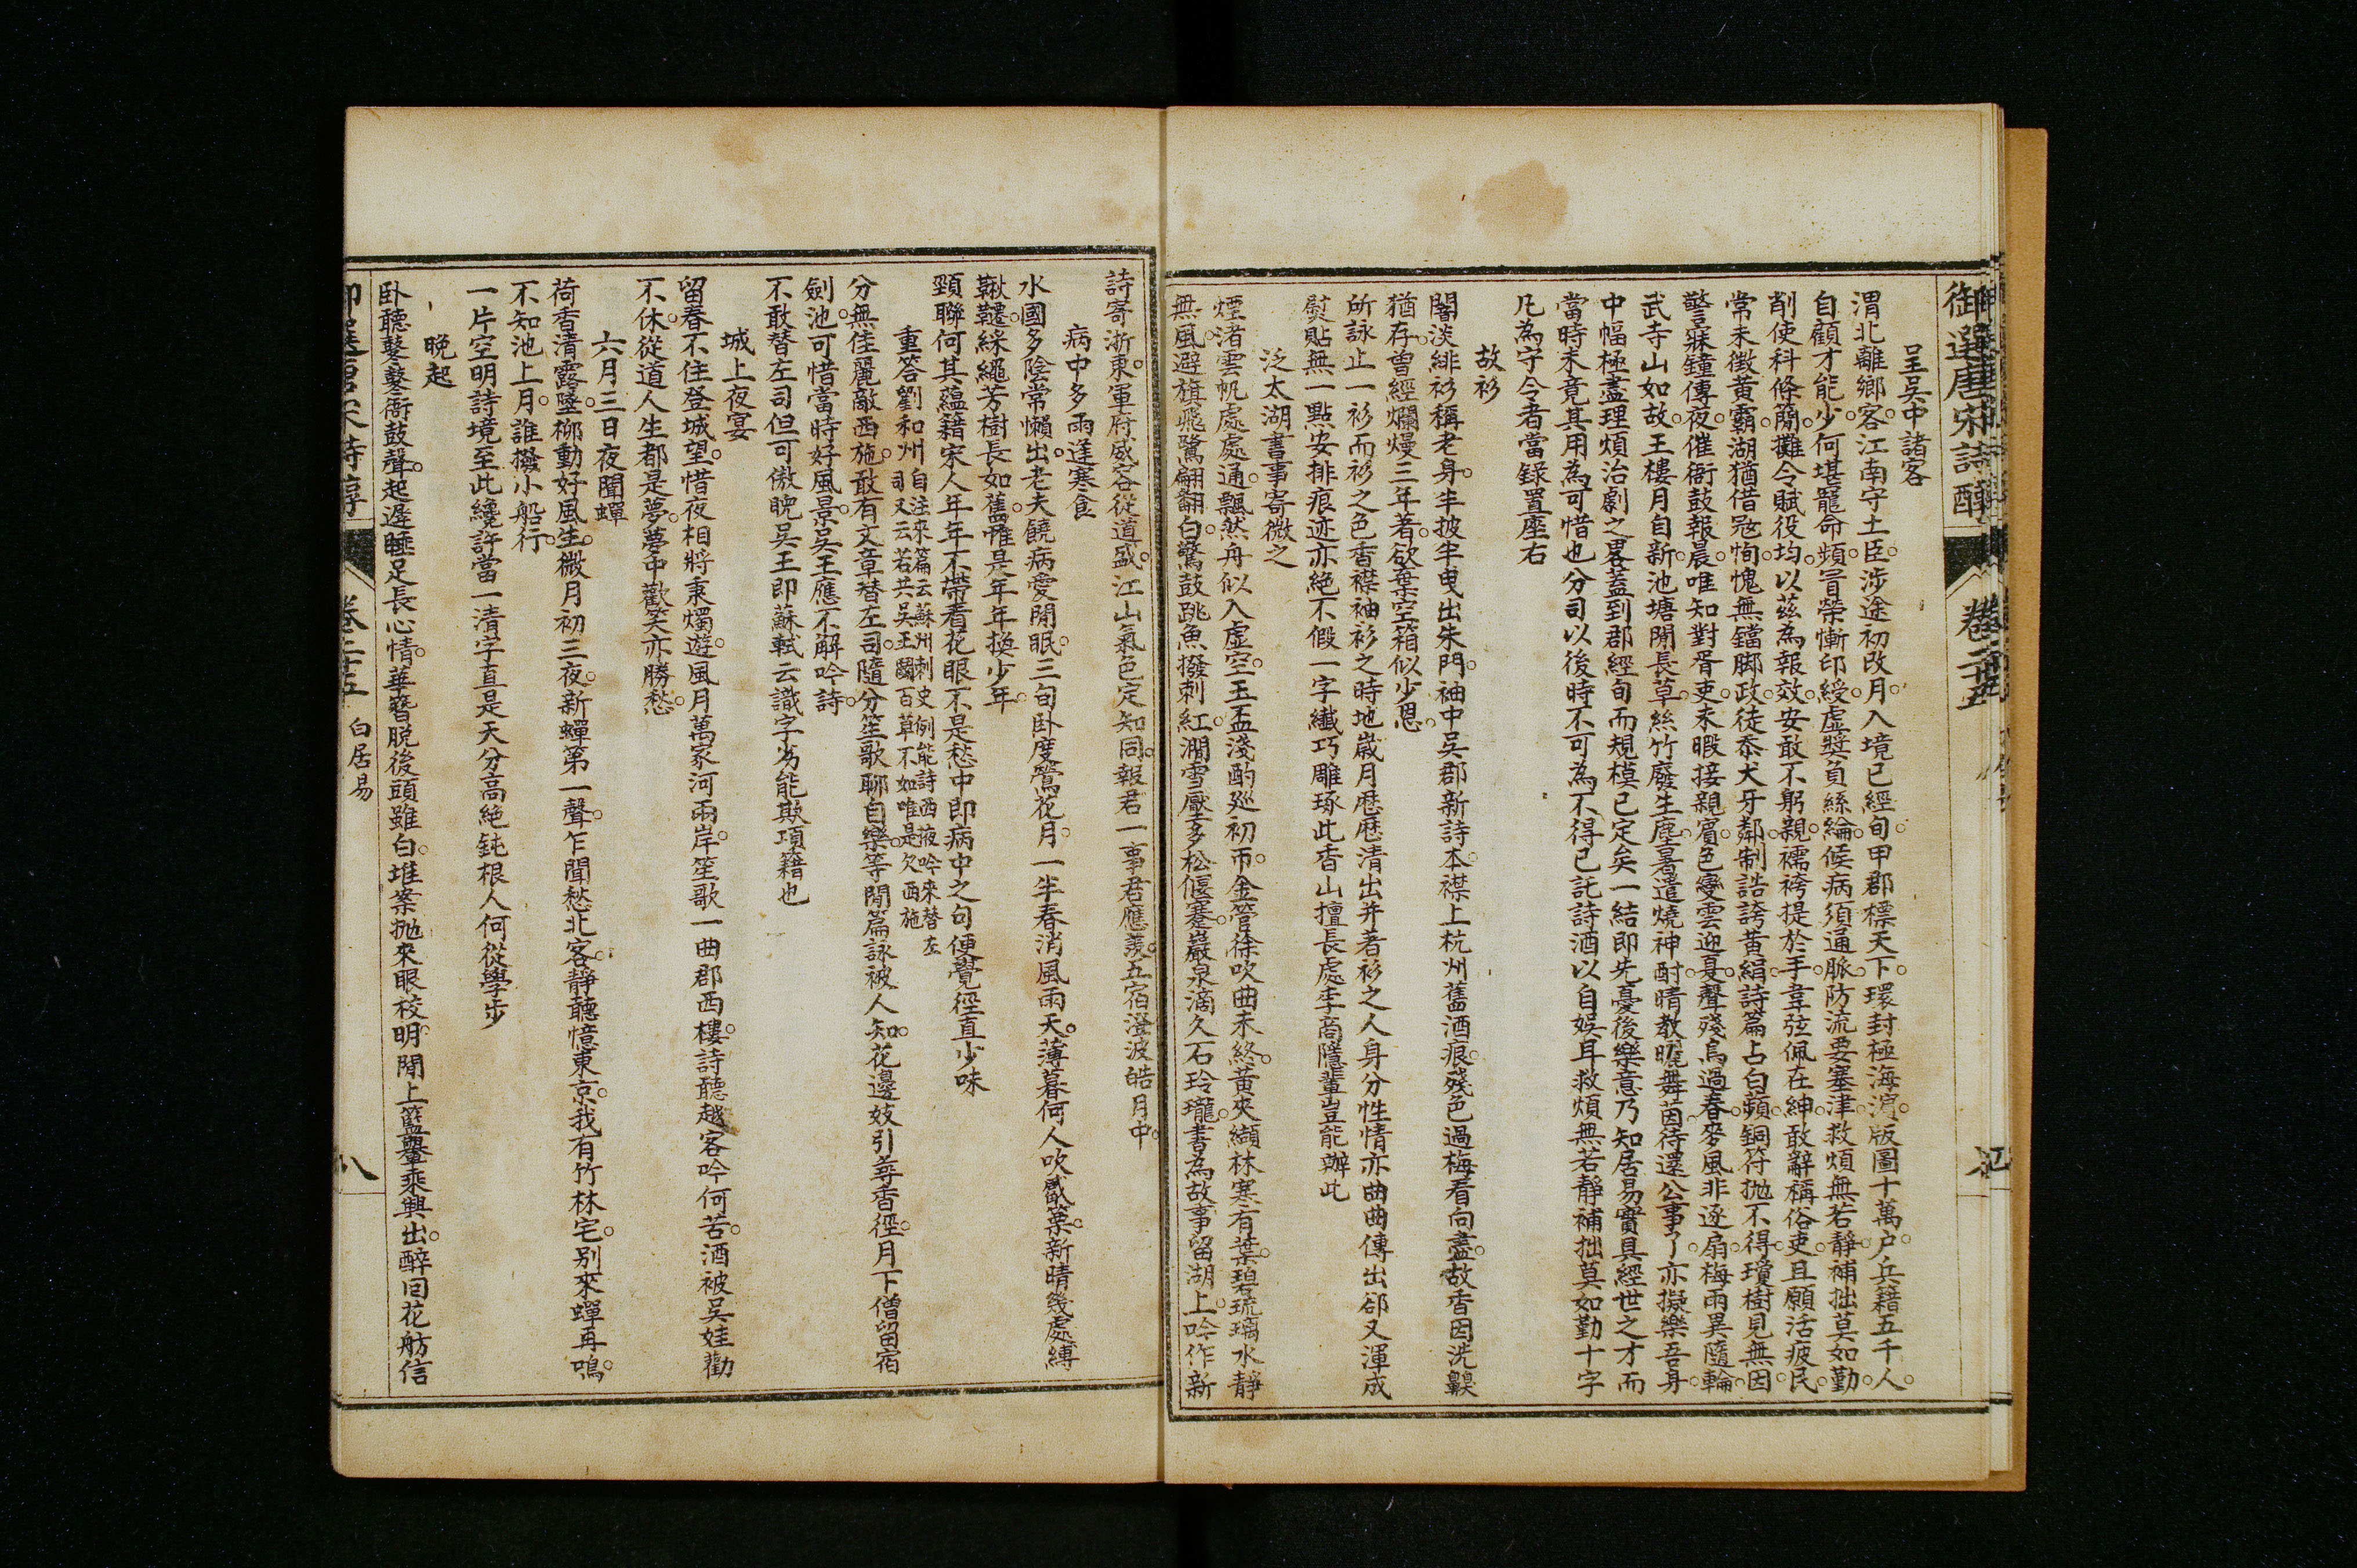 御選唐宋詩醇
卷二十五
呈吳中諸客
渭北離鄉客。江南守土臣。涉途初改月。入境已經旬。甲郡標天下。環封極海濱。版圖十萬户。兵籍五千人。
自顧才能少。何堪寵命頻。冒榮慚印綬。虛奬負絲綸。候病須通脈。防流要塞津。救煩無若靜。補拙莫如勤。
削使科條簡。攤令賦役均。以茲為報效。安敢不躬親。襦袴提於手。韋弦佩在紳。敢辭稱俗吏。且願活疲民。
常未徵黃霸。湖猶借寇恂。愧無鐺脚政。徒忝犬牙鄰。制誥誇黃絹。詩篇占白蘋。銅符抛不得。瓊樹見無因。
警寐鐘傳夜。催衙鼓報晨。唯知對胥吏。未暇接親賓。色變雲迎夏。聲殘鳥過春。麥風非逐扇。梅雨異隨輪。
武寺山如故。王樓月自新。池塘閒長草。絲竹廢生塵。暑遣燒神酎。晴教曬舞茵。待還公事了。亦擬樂吾身。
中幅極盡理煩治劇之畧蓋到郡經旬而規模已定矣一結即先憂後樂意乃知居易實具經世之才而
當時未竟其用為可惜也分司以後時不可為不得已託詩酒以自娛耳救煩無若靜補拙莫如勤十字
凡為守令者當錄置座右
故衫
闇淡緋衫稱老身。半披半曳出朱門。袖中吳郡新詩本。襟上杭州舊酒痕。殘色過梅看向盡。故香因洗齅
猶存。曾經爛熳三年著。欲棄空箱似少恩。
所詠止一衫而衫之色香襟袖衫之時地歲月歷歷清出并著衫之人身分性情亦曲曲傳出郤又渾成
熨貼無一點安排痕迹亦絶不假一字纖巧雕琢此香山擅長處李商隱輩豈能辦此
泛太湖書事寄微之
煙渚雲帆處處通。飄然舟似入虛空。玉盃淺酌廵初帀。金管徐吹曲未終。黃夾纈林寒有葉。碧琉璃水靜
無風。避旗飛鷺翩翻白。驚鼓跳魚撥刺紅。澗雪壓多松偃蹇。巖泉滴久石玲瓏。書為故事留湖上。吟作新
詩寄浙東。軍府威容從道盛。江山氣色定知同。報君一事君應羨。五宿澄波皓月中。
病中多雨逢寒食
水國多陰常懶出。老夫饒病愛閒眠。三旬卧度鶯花月。一半春消風雨天。薄暮何人吹觱篥。新晴幾處縛
鞦韆。綵繩芳樹長如舊。惟是年年換少年。
頸聯何其蘊藉宋人年年不帶看花眼不是愁中即病中之句便覺徑直少味
重答劉和州自注來篇云蘇州刺史例能詩西掖吟來替左
司又云若共吳王鬭百草不如唯是欠西施
分無佳麗敵西施。敢有文章替左司。隨分笙歌聊自樂。等閒篇詠被人知。花邊妓引尋香徑。月下僧留宿
劍池。可惜當時好風景。吳王應不解吟詩。
不敢替左司但可傲睨吳王即蘇軾云識字劣能欺項籍也
城上夜宴
留春不住登城望。惜夜相將秉燭遊。風月萬家河兩岸。笙歌一曲郡西樓。詩聽越客吟何苦。酒被吳娃勸
不休。從道人生都是夢。夢中歡笑亦勝愁。
六月三日夜聞蟬
荷香清露墜。柳動好風生。微月初三夜。新蟬第一聲。乍聞愁北客。靜聽憶東京。我有竹林宅。别來蟬再鳴。
不知池上月。誰撥小船行。
一片空明詩境至此纔許當一清字直是天分高絶鈍根人何從學步
晚起
卧聽鼕鼕衙鼓聲。起遲睡足長心情。華簪脫後頭雖白。堆案抛來眼校明。閒上籃轝乘興出。醉回花舫信
卷二十五
白居易
八